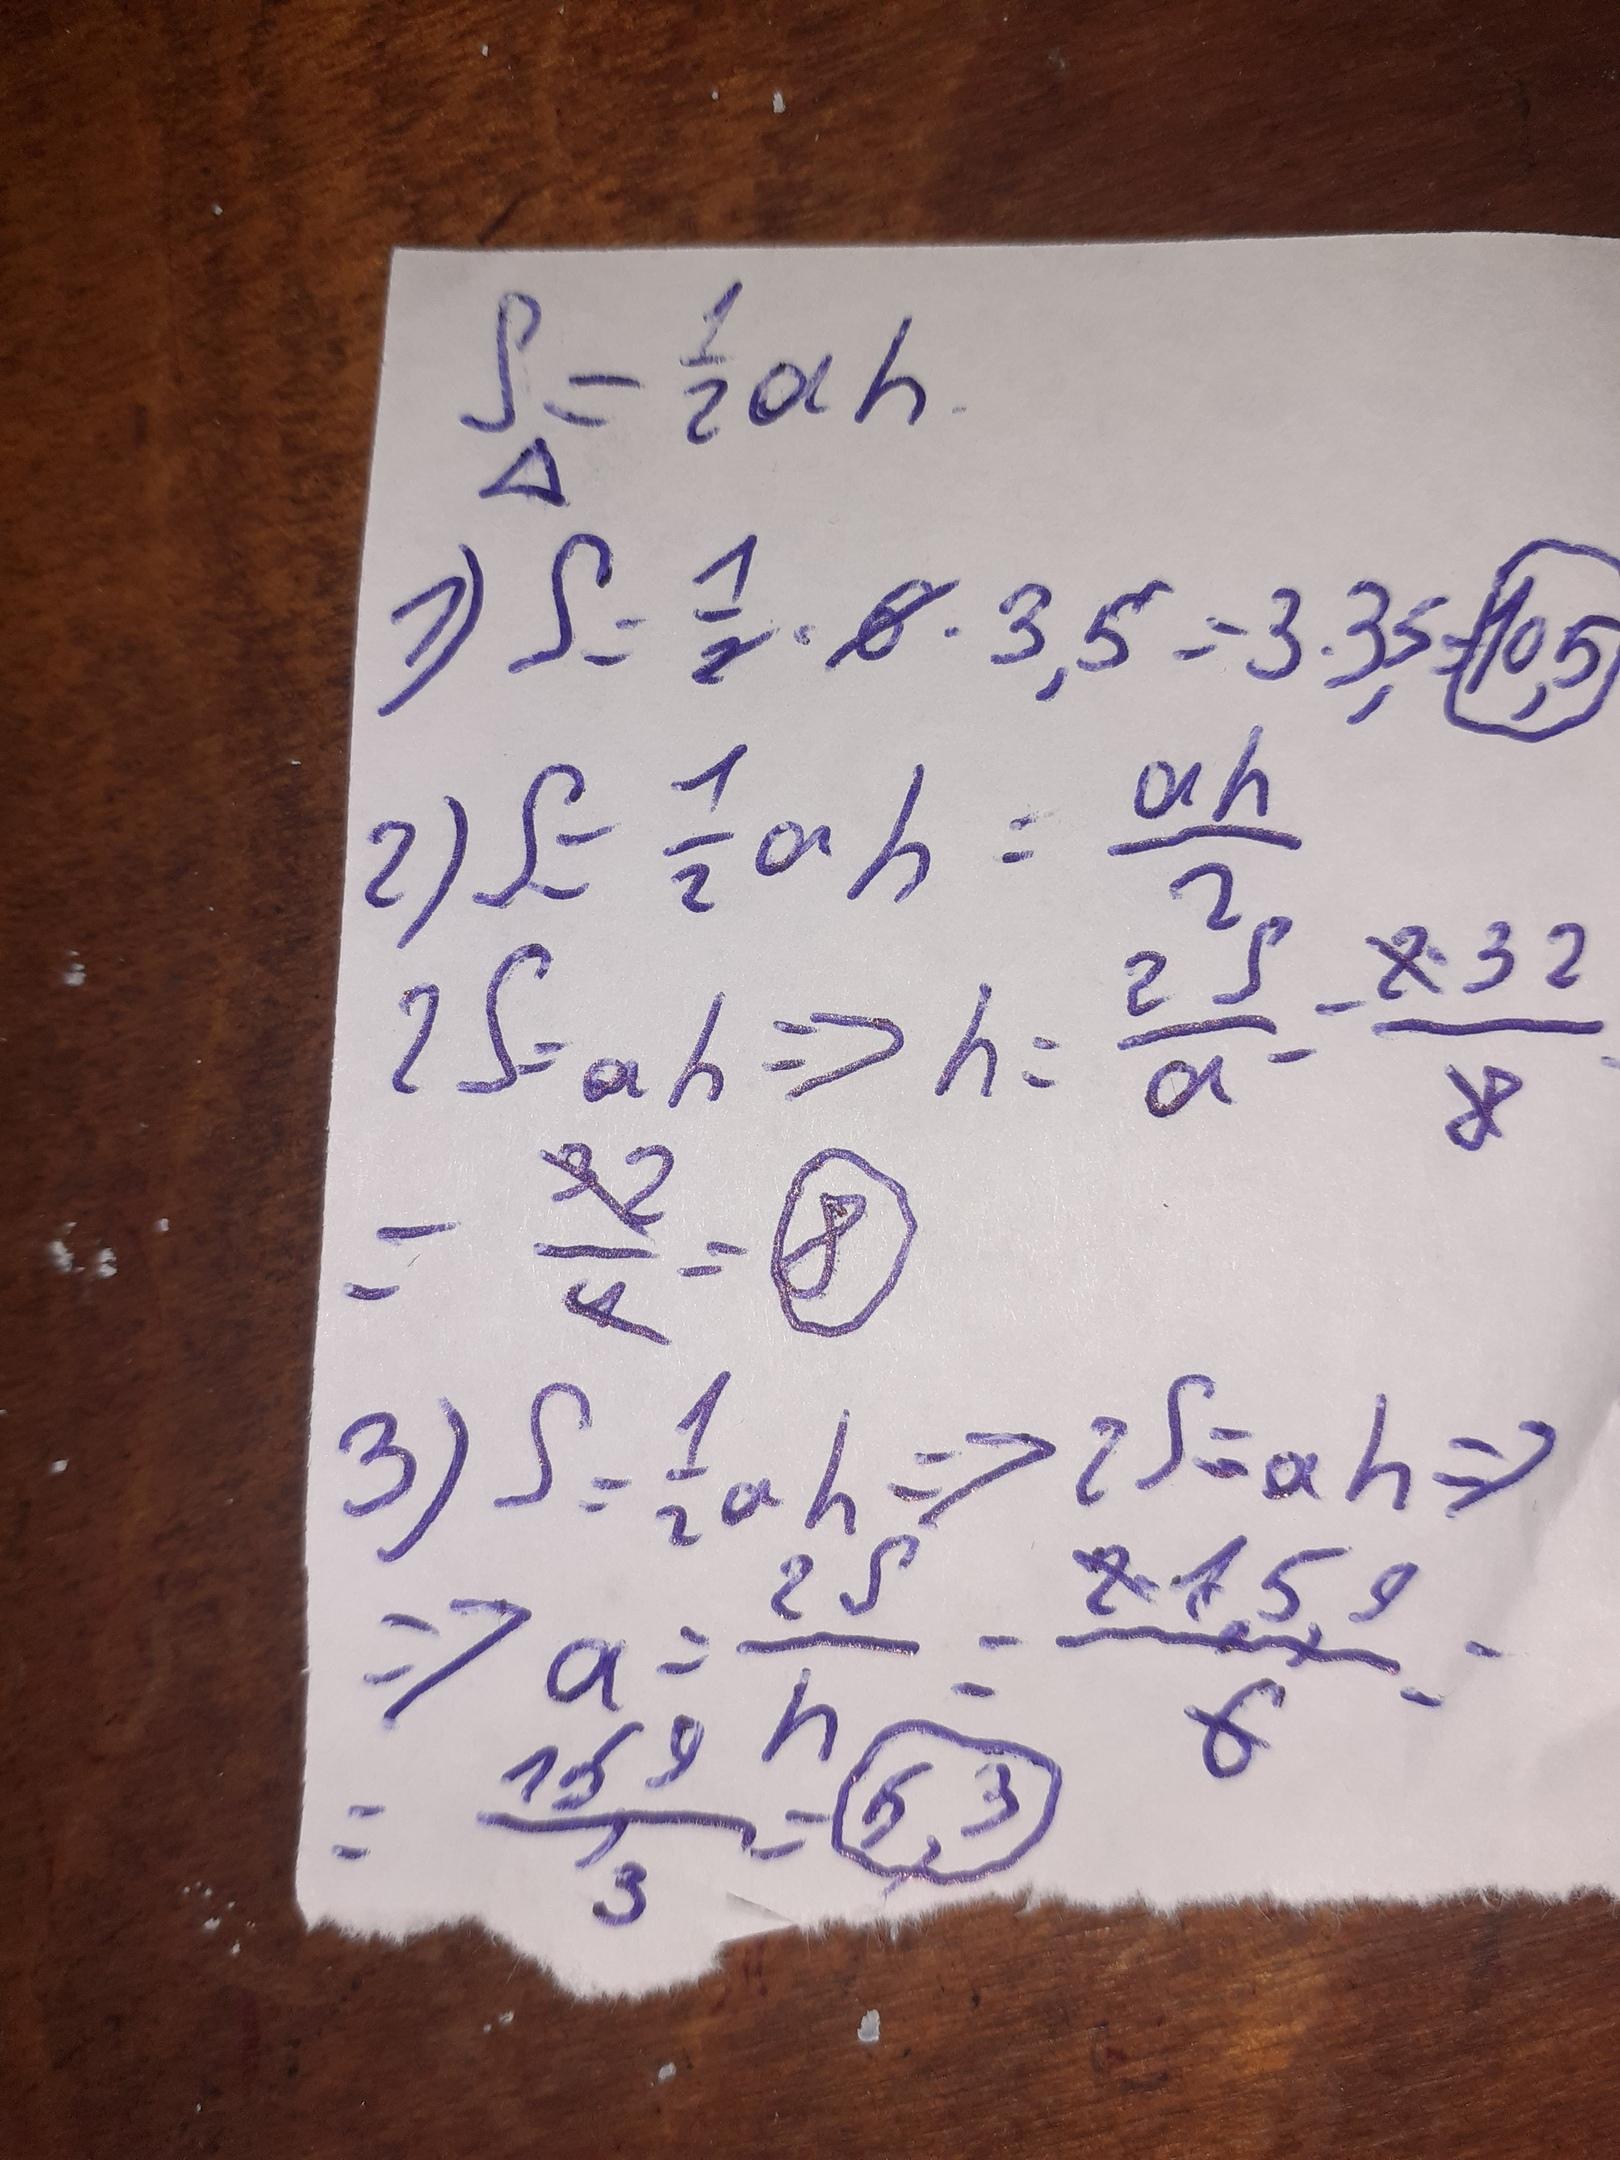 S△ = 1/2 ah.
1) S = 1/2 · 6 · 3,5 = 3 · 3,5 = 10,5
2) S = 1/2 ah = ah/2
2S = ah => h = 2S/a = 2·32/8 =
= 32/4 = 8
3) S = 1/2 ah => 2S = ah =>
=> a = 2S/h = 2·15,9/6 =
= 15,9/3 = 5,3